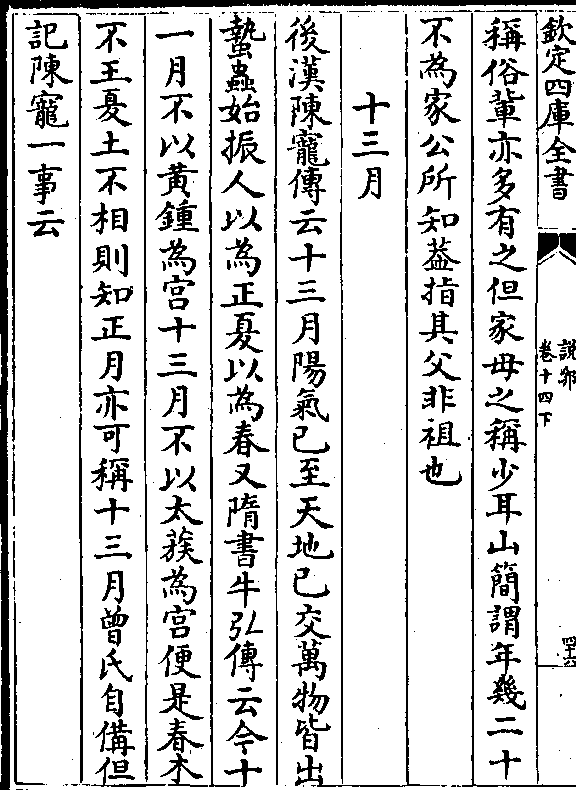 欽定四庫全書
說郛
卷十四下
四十六
稱俗輩亦多有之但家母之稱少耳山簡謂年幾二十
不為家公所知葢指其父非祖也
十三月
後漢陳寵傳云十三月陽氣已至天地已交萬物皆出
蟄蟲始振人以為正夏以為春又隋書牛弘傳云今十
一月不以黃鍾為宮十三月不以太蔟為宮便是春木
不王夏土不相則知正月亦可稱十三月曾氏自備但
記陳寵一事云